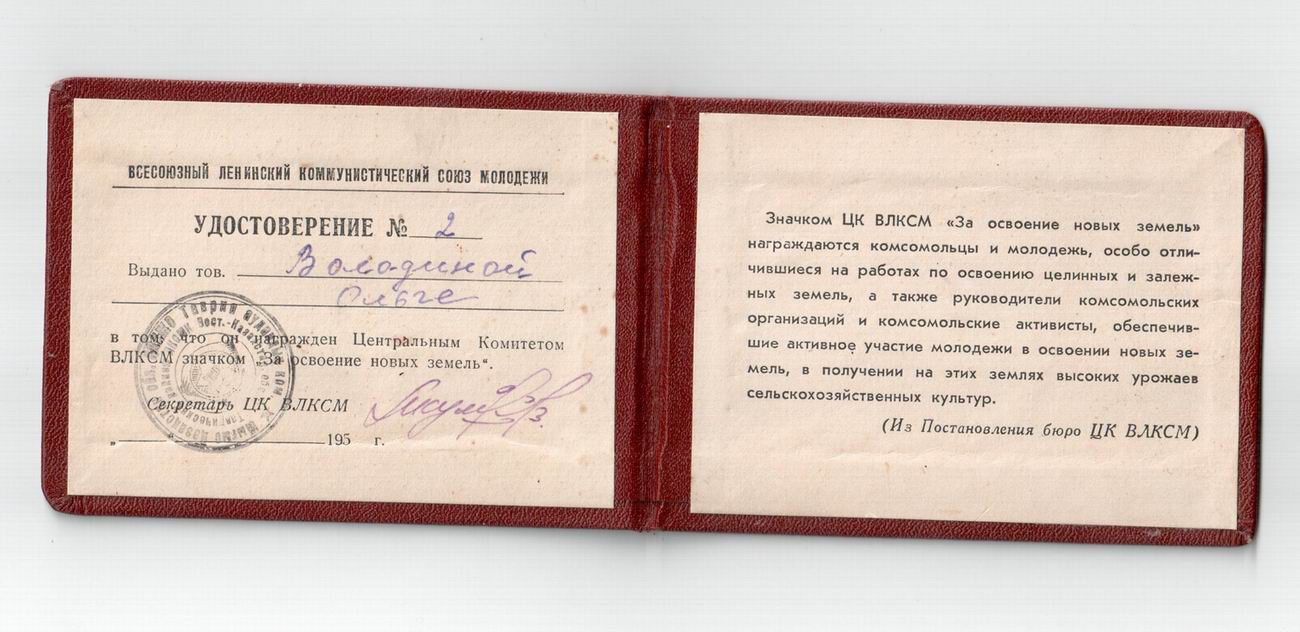 ВСЕСОЮЗНЫЙ ЛЕНИНСКИЙ КОММУНИСТИЧЕСКИЙ СОЮЗ МОЛОДЕЖИ
УДОСТОВЕРЕНИЕ № 2
Выдано тов. Володиной
Ольге
в том, что он награжден Центральным Комитетом
ВЛКСМ значком „За освоение новых земель“.
Секретарь ЦК ВЛКСМ
„ 195 г.
Значком ЦК ВЛКСМ «За освоение новых земель»
награждаются комсомольцы и молодежь, особо отли-
чившиеся на работах по освоению целинных и залеж-
ных земель, а также руководители комсомольских
организаций и комсомольские активисты, обеспечив-
шие активное участие молодежи в освоении новых зе-
мель, в получении на этих землях высоких урожаев
сельскохозяйственных культур.
(Из Постановления бюро ЦК ВЛКСМ)